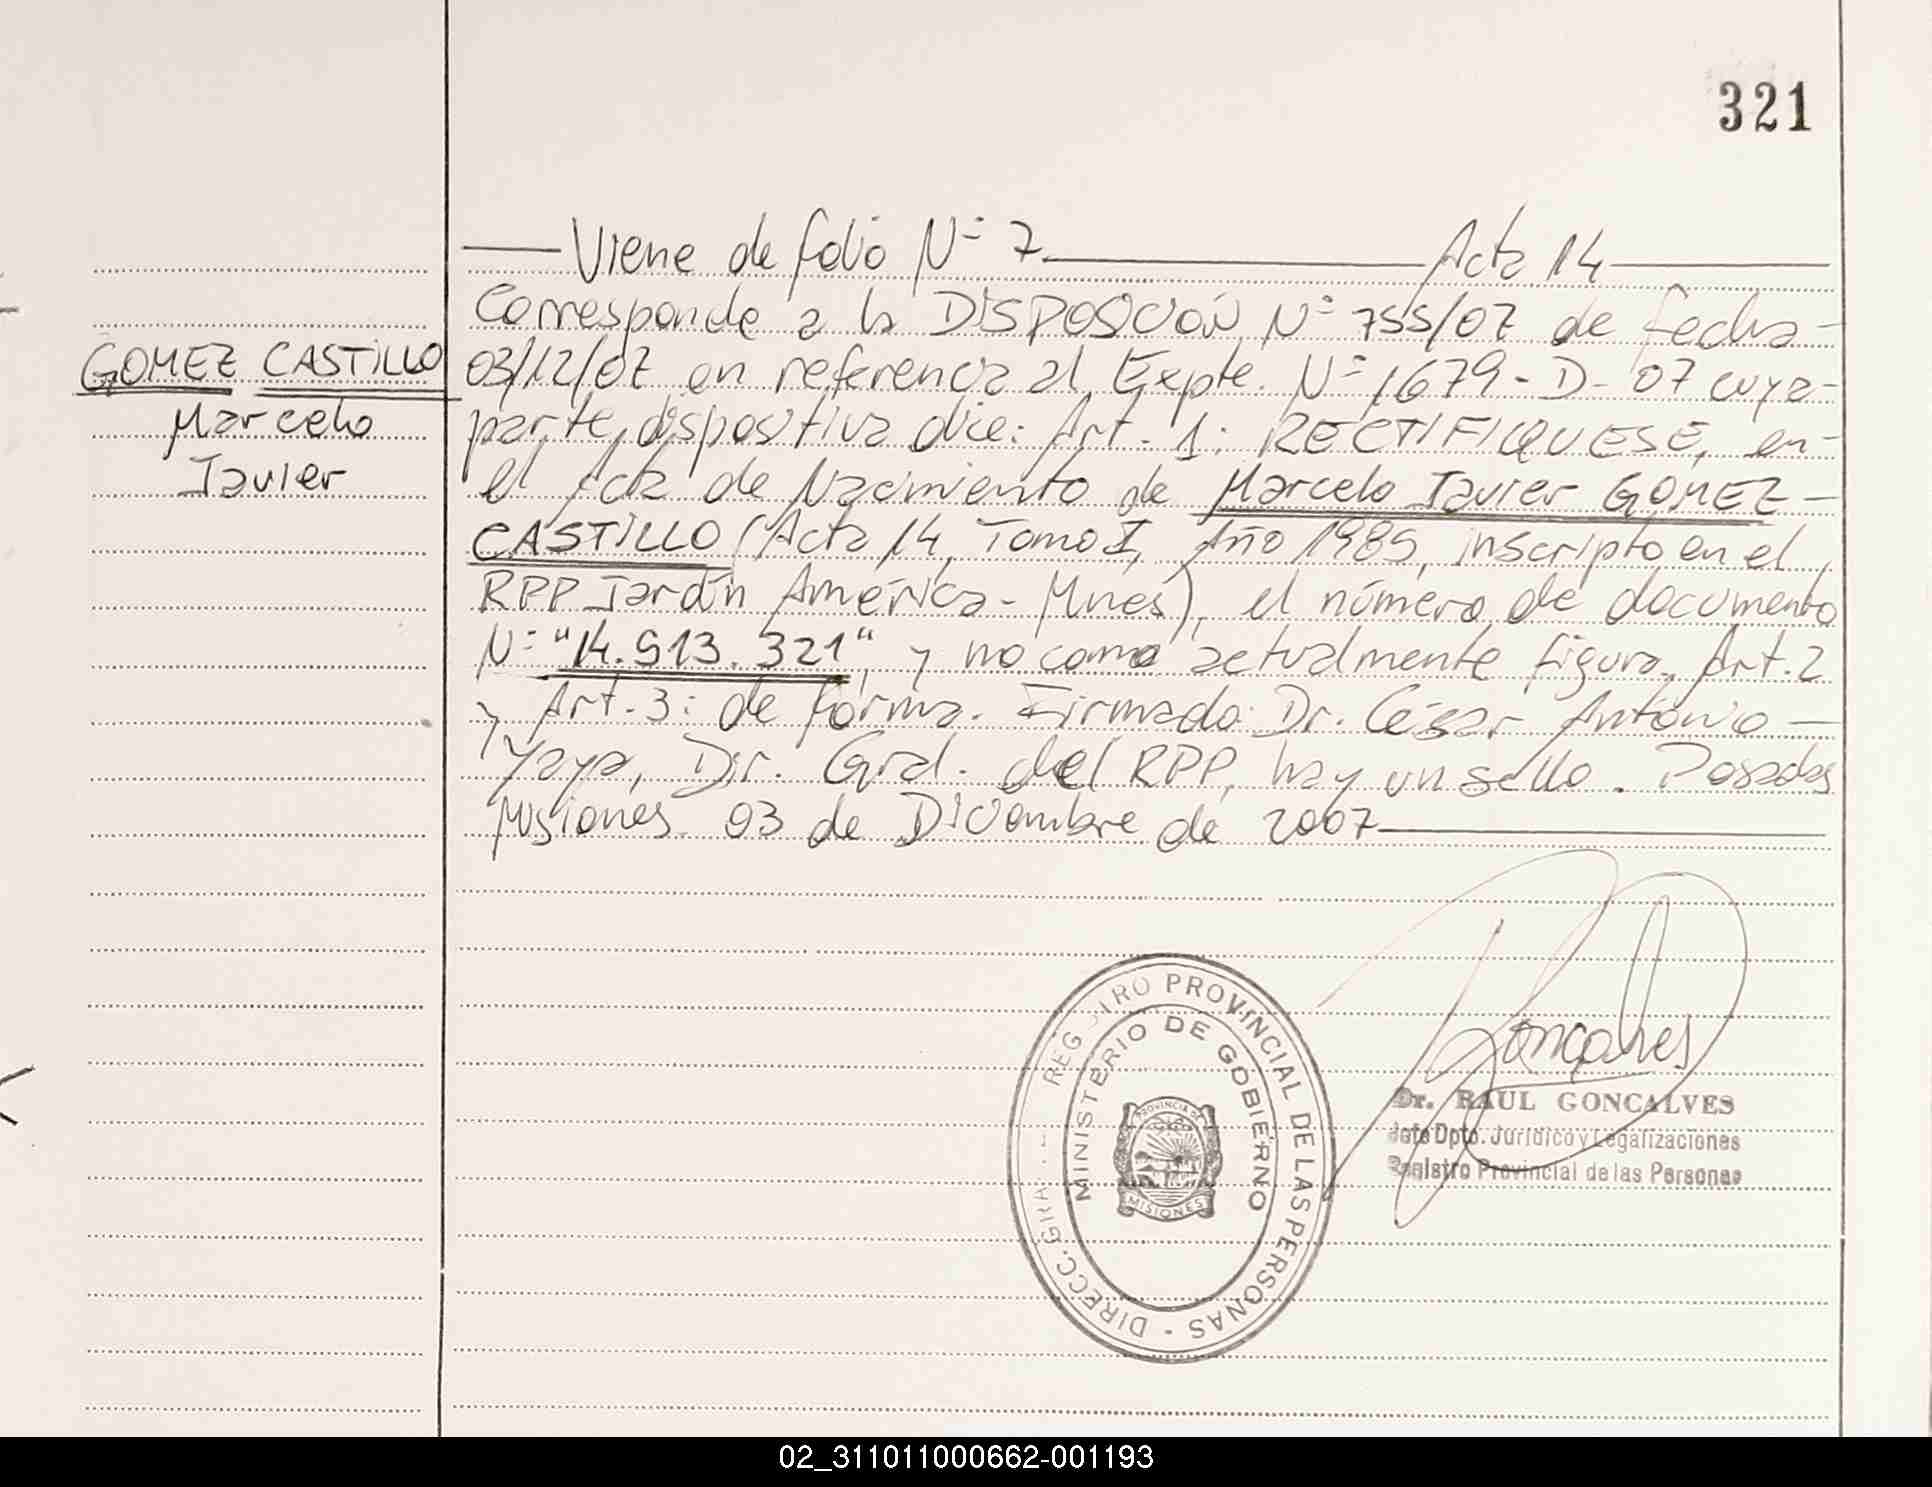 321
Viene de folio Nº 7 Acta 14
Corresponde a la DISPOSICIÓN Nº 755/07 de fecha
GOMEZ CASTILLO
Marcelo
Javier
03/12/07 en referencia al Expte. Nº 1679-D-07 cuya
parte dispositiva dice: Art. 1: RECTIFIQUESE, en
el Acta de Nacimiento de Marcelo Javier GOMEZ
CASTILLO (Acta 14, Tomo I, Año 1985, inscripto en el
RPP Jardín América - Mnes), el número de documento
Nº "14.513.321", y no como actualmente figura. Art. 2
y Art. 3: de forma. Firmado: Dr. César Antonio
Yaya, Dir. Gral. del RPP, hay un sello. Posadas
Misiones 03 de Diciembre de 2007
Goncalves
Dr. RAUL GONCALVES
Jefe Dpto. Jurídico y Legalizaciones
Registro Provincial de las Personas
DIRECC. GRAL. REGISTRO PROVINCIAL DE LAS PERSONAS -
MINISTERIO DE GOBIERNO
PROVINCIA DE
MISIONES
02_311011000662-001193